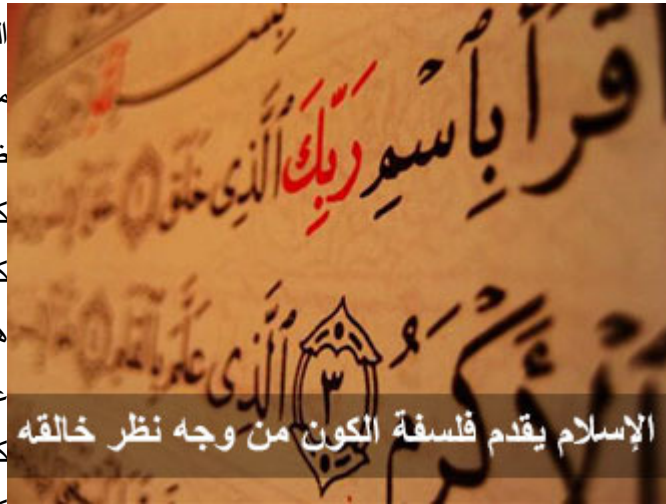 ٱقْرَأْ بِٱسْمِ رَبِّكَ ٱلَّذِى خَلَقَ ١
ٱلْأَكْرَمُ ٣ ٱلَّذِى عَلَّمَ بِٱلْقَلَمِ
الإسلام يقدم فلسفة الكون من وجه نظر خالقه